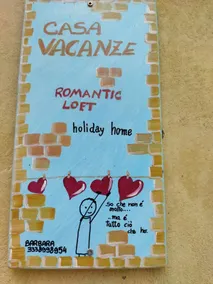 CASA
VACANZE
ROMANTIC
LOFT
holiday home
so che non è
molto...
...ma è
tutto ciò
che ho
BARBARA
3338998954